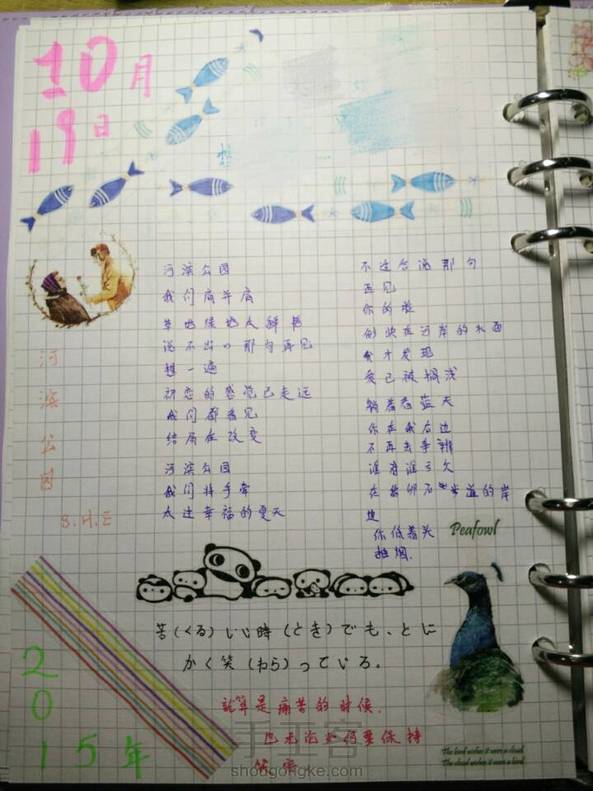 10月
19日
河滨公园
我们肩并肩
草地绿地大辞卷
说不出口那句再见
想一遍
初恋的感觉已走远
我们都看见
结局在改变
河滨公园
我们持手牵
太过幸福的夏天
不过含泪那句
再见
你的脸
倒映在河岸的水面
我才发现
爱已被搁浅
躺着看蓝天
你在我左边
不再去争辩
谁有谁亏欠
在鹅卵石步道的岸
边
你低着头
抽烟.
河
滨
公
园
S.H.E
Peafowl
苦(くる)しい時(とき)でも、とに
かく笑(わら)っている。
就算是痛苦的时候.
也无论如何要保持
笑容
2015年
The bird wishes it were a cloud.
The cloud wishes it were a bird.
手工客
shougongke.com